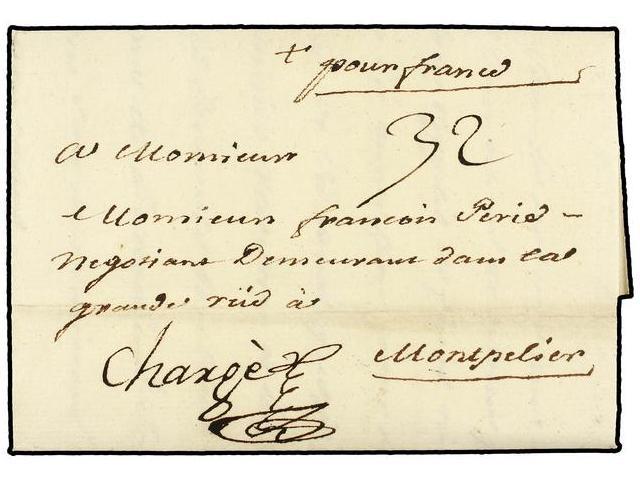 + pour france
32
A Monsieur
Monsieur françois Perié
Negotiant Demeurant dans la
grande rüe à
Montpelier
Chargè